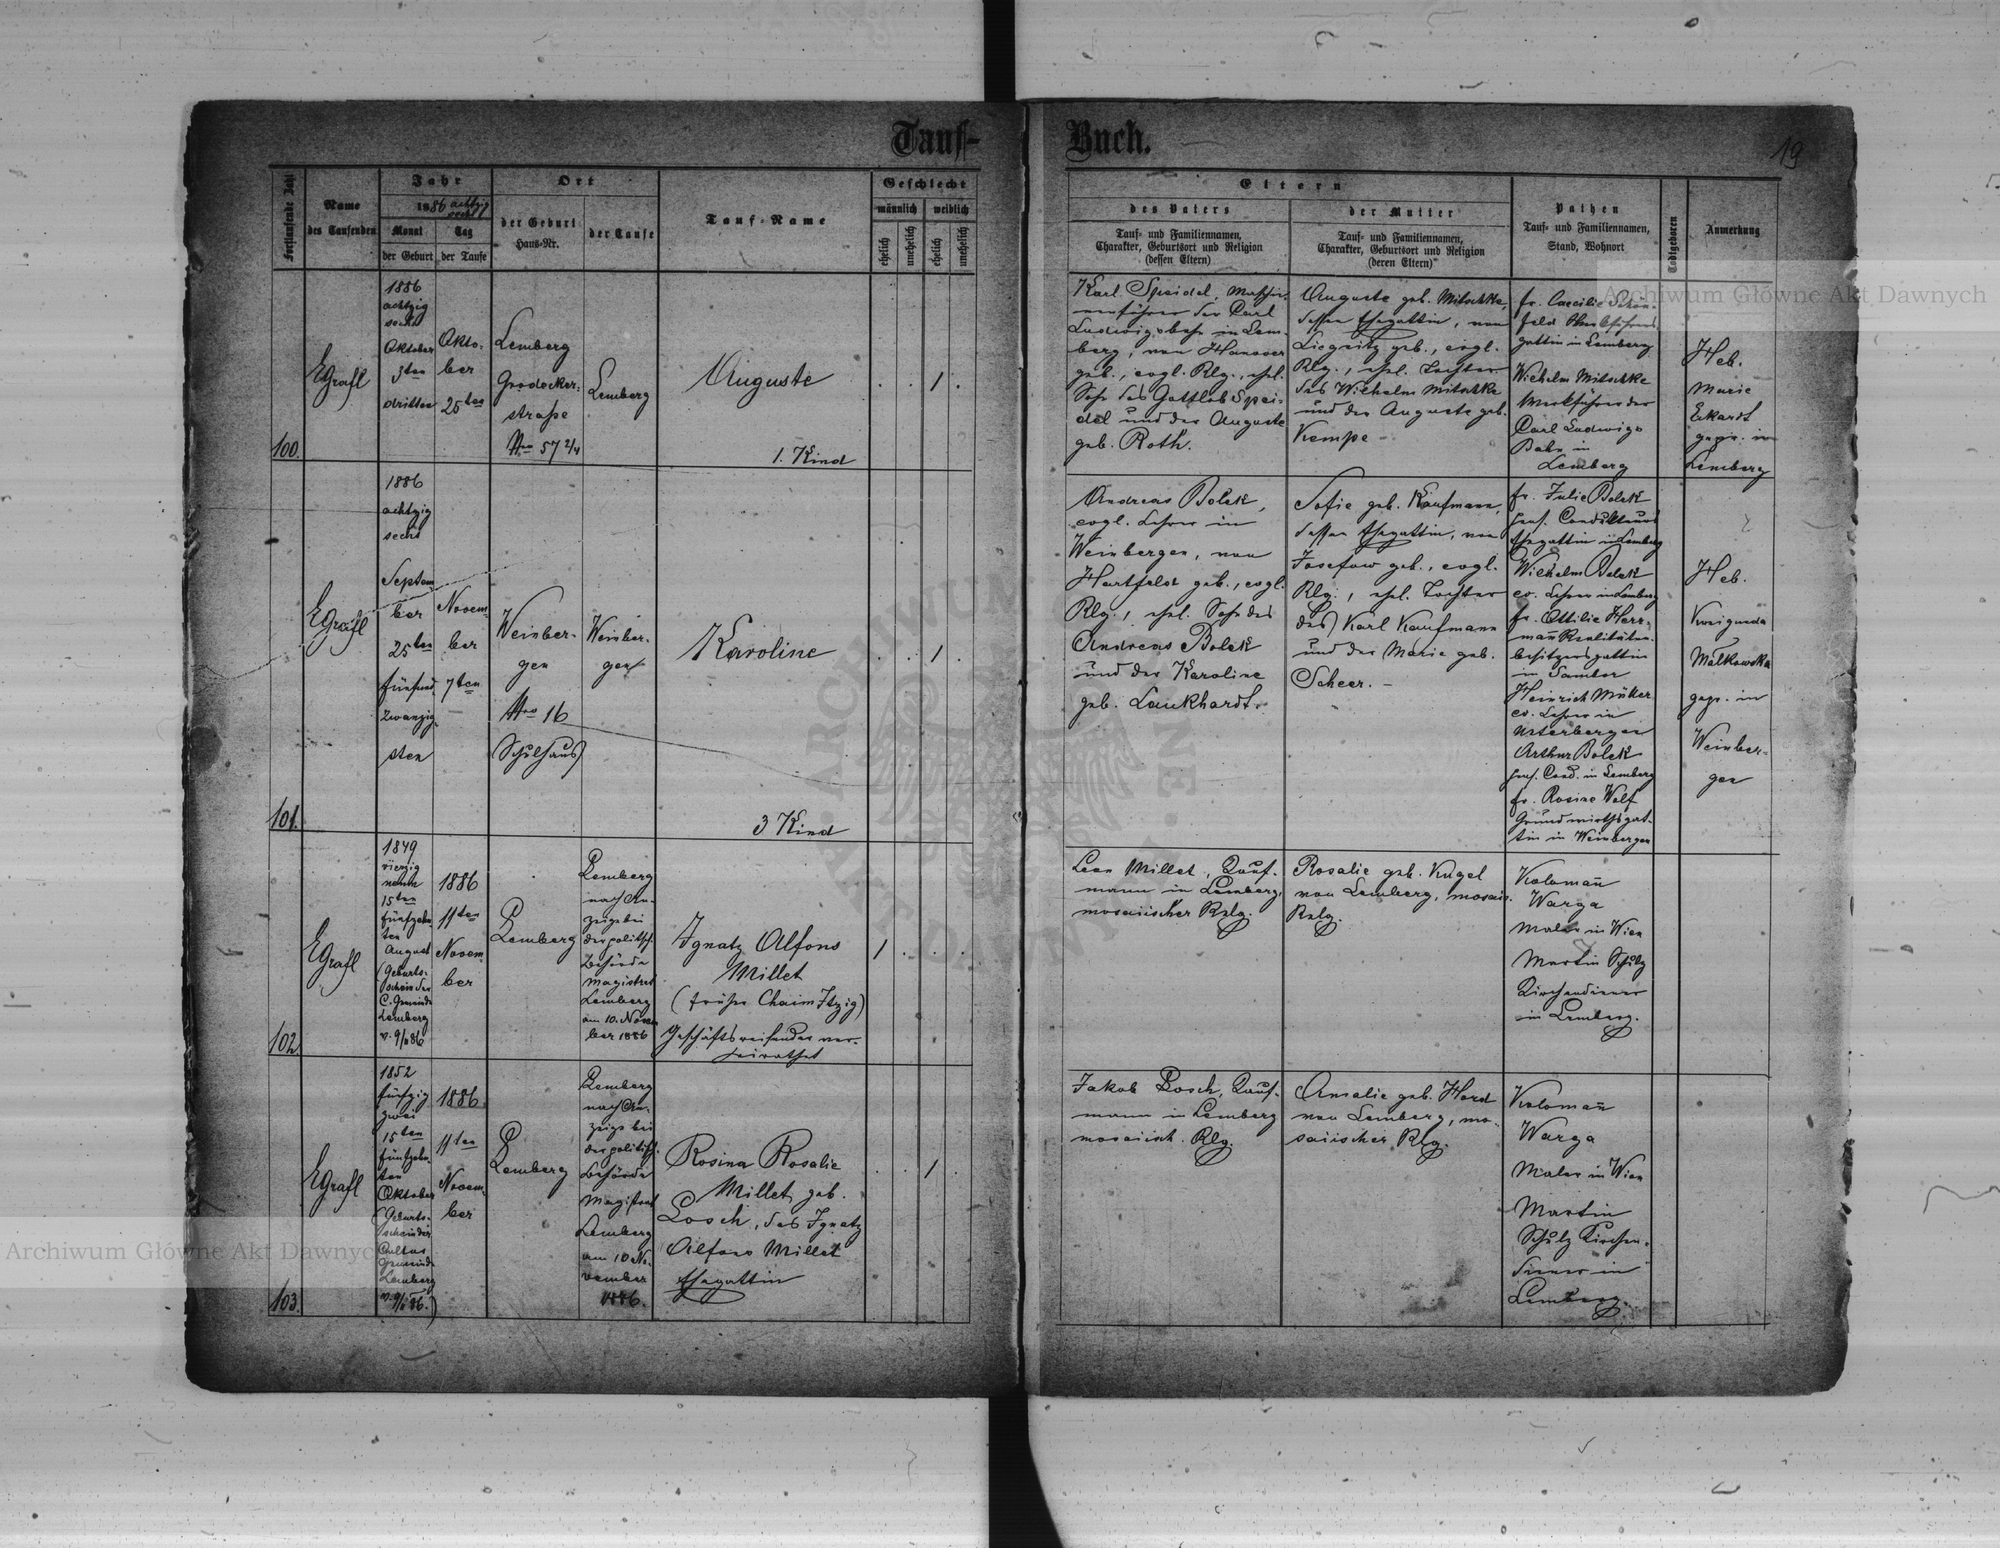 Tauf-
Buch.
19
Fortlaufende Zahl
Name
des Taufenden
Jahr
1886 achtzig
sechs
Monat
Tag
der Geburt
der Taufe
Ort
der Geburt
Haus-Nr.
der Taufe
Tauf-Name
Geschlecht
männlich
weiblich
ehelich
unehelich
ehelich
unehelich
Eltern
des Vaters
Tauf- und Familiennamen,
Charakter, Geburtsort und Religion
(dessen Eltern)
der Mutter
Tauf- und Familiennamen,
Charakter, Geburtsort und Religion
(deren Eltern)
Pathen
Tauf- und Familiennamen,
Stand, Wohnort
Todtgeboren
Anmerkung
100.
EGrafl
1886
achtzig
sechs
Oktober
3ten
dritten
Okto-
ber
25ten
Lemberg
Grodecker-
straße
Nro 57 2/4
Lemberg
Auguste
1. Kind
1
Karl Speidel, Maschi-
nenführer der Carl
Ludwigsbahn in Lem-
berg, von Hanover
geb., evgl. Rlg., ehel.
Sohn des Gottlob Spei-
del und der Auguste
geb. Roth.
Auguste geb. Mitschke,
dessen Ehegattin, von
Liegnitz geb., evgl.
Rlg., ehel. Tochter
des Wilhelm Mitschke
und der Auguste geb.
Kempe -
fr. Caecilie Schön-
feld Werkführers-
gattin in Lemberg
Wilhelm Mitschke
Werkführer der
Carl Ludwigs
Bahn in
Lemberg
Heb.
Marie
Eckardt
gepr. in
Lemberg
101.
EGrafl
1886
achtzig
sechs
Septem
ber
25ten
fünfund
zwanzig-
sten
Novem-
ber
7ten
Weinber-
gen
Nro 16
(Schulhaus)
Weinber-
gen
Karoline
3 Kind
1
Andreas Bolek,
evgl. Lehrer in
Weinbergen, von
Hartfeld geb., evgl.
Rlg., ehel. Sohn des
Andreas Bolek
und der Karoline
geb. Laukhardt.
Sofie geb. Kaufmann,
dessen Ehegattin, von
Josefow geb., evgl.
Rlg., ehel. Tochter
des Karl Kaufmann
und der Marie geb.
Scheer. -
fr. Julie Bolek
pens. Condukteurs
Ehegattin in Lemberg
Wilhelm Bolek
ev. Lehrer in Lemberg
fr. Ottilie Herr-
mann Realitäten-
besitzersgattin
in Sambor
Heinrich Müller
ev. Lehrer in
Unterbergen
Arthur Bolek
pens. Cond. in Lemberg
fr. Rosine Wolf
Grundwirthsgat-
tin in Weinbergen
Heb.
Kunigunda
Malkowska
gepr. in
Weinber-
gen
102.
EGrafl
1849
vierzig
neun
15ten
fünfzehn-
ten
August
(Geburts-
schein der
C. Gemeinde
Lemberg
1886
11ten
Novem-
ber
Lemberg
Lemberg
nach An-
zeige bei
der politsch.
Behörde
Magistrat
Lemberg
am 10. Novem
ber 1886
Ignatz Alfons
Millet
(früher Chaim Itzig)
Geschäftsreisender ver-
heirathet
1
Leon Millet, Kauf-
mann in Lemberg,
mosaiischer Relg.
Rosalie geb. Kugel
von Lemberg, mosais.
Relg.
Kolomann
Warga
Maler in Wien
Martin Schulz
Kirchendiener
in Lemberg.
103.
EGrafl
1852
fünfzig
zwei
15ten
fünfzehn-
ten
Oktober
(Geburts-
schein der
Cultus
Gemeinde
Lemberg
1886
11ten
Novem-
ber
Lemberg
Lemberg
nach An-
zeige bei
der politsch.
Behörde
Magistrat
Lemberg
am 10 No-
vember
1886.
Rosina Rosalie
Millet geb.
Losch, des Ignatz
Alfons Millet
Ehegattin
1
Jakob Losch, Kauf-
mann in Lemberg
mosaiisch. Rlg.
Amalie geb. Hard
von Lemberg, mo-
saiischer Rlg.
Kolomann
Warga
Maler in Wien
Martin
Schulz Kirchen-
diener in
Lemberg.
Archiwum Główne Akt Dawnych
Archiwum Główne Akt Dawnych